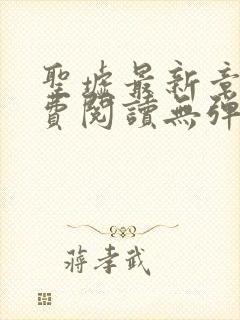 聖墟最新章
費閱讀無彈
蔣孝武